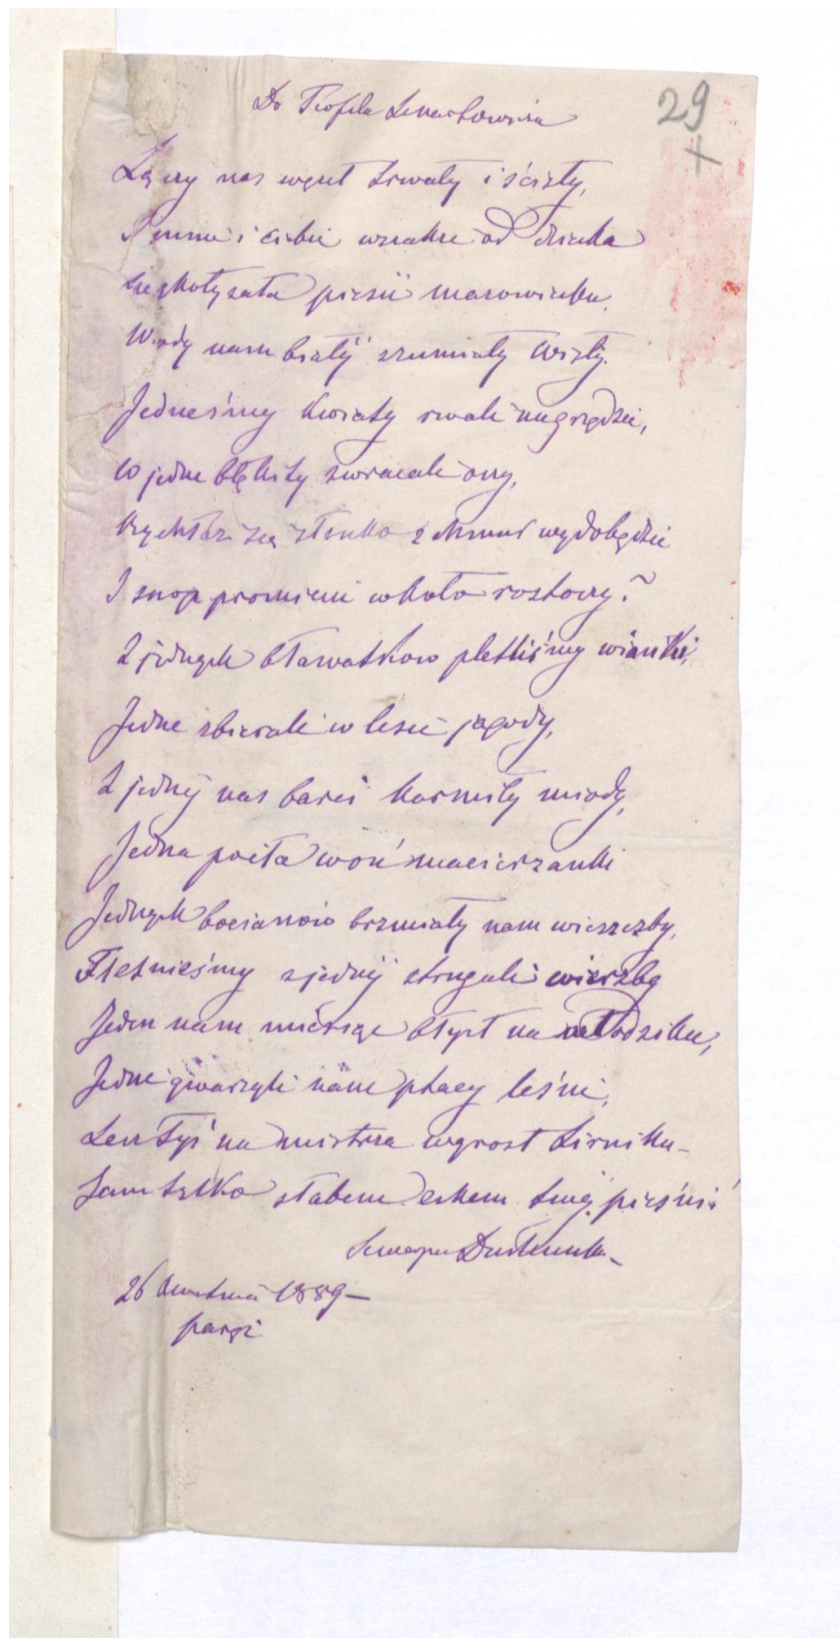 Do Teofila Lenartowicza
29
Łączy nas węzeł trwały i ścisły,
I mnie i ciebie wszakże od dziecka
kołysała pieśń mazowiecka.
Wody nam białej szumiały Wisły.
Jedneśmy kwiaty rwali na grzędzie,
W jedne błękity zwracali oczy,
Czy słonko z chmur wydobędzie
I snop promieni wkoło roztoczy?
Z jednych bławatków pletliśmy wianki,
Jedne zbierali w lesie jagody,
Z jednej nas barci karmiły miody,
Jedna poiła woń macierzanki
Jednych bocianów brzmiały nam wieszczby,
Fletnieśmy z jednej strugali wierzby
Jeden nam miesiąc błyszczał na
Jedni gwarzyli nam ptacy leśni,
Lecz Tyś na mistrza wyrósł Lirnika –
Jam tylko słabem echem twej pieśni
Seweryna Duchińska –
26 kwietnia 1889 –
Paryż